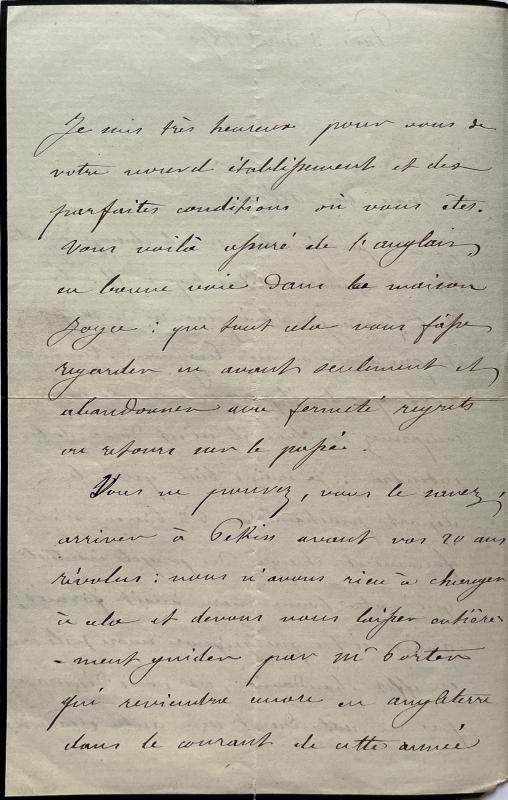 Je suis très heureux pour vous de
votre nouvel établissement et des
parfaites conditions où vous êtes.
Vous voilà assuré de l'anglais,
en bonne voie dans la maison
: que tout cela vous fasse
regarder en avant seulement et
abandonner avec fermeté regrets
ou retours sur le passé.
Vous ne pouvez, vous le savez,
arriver à Pekin avant vos 20 ans
révolus : nous n'avons rien à changer
à cela et devons nous laisser entière-
-ment guider par Mr Porter
qui reviendra encore en angleterre
dans le courant de cette année